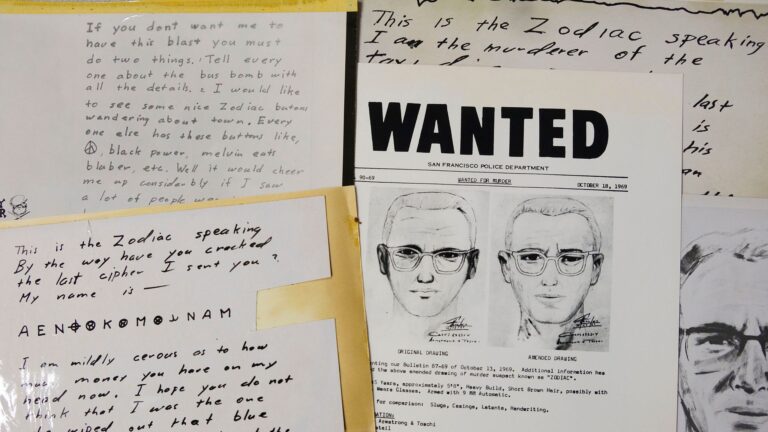 If you dont want me to
have this blast you must
do two things. Tell every
one about the bus bomb with
all the details. 2 I would like
to see some nice Zodiac butons
wandering about town. Every
one else has these buttons like,
black power, melvin eats
blaber, etc. Well it would cheer
me up considerably if I saw
a lot of people
This is the Zodiac speaking
I am the murderer of the
last
is
his
an
This is the Zodiac speaking
By the way have you cracked
the last cipher I sent you ?
My name is —
A E N ⊕ ⊗ K ⊗ M ⊗ ⅃ N A M
I am mildly cerous as to how
much money you have on my
head now. I hope you do not
think that I was the one
wiped out that blue
WANTED
SAN FRANCISCO POLICE DEPARTMENT
90-69 WANTED FOR MURDER OCTOBER 18, 1969
ORIGINAL DRAWING AMENDED DRAWING
our Bulletin 87-69 of October 13, 1969. Additional information has
the above amended drawing of murder suspect known as "ZODIAC".
approximately 5'8", Heavy Build, Short Brown Hair, possibly with
Glasses. Armed with 9 MM Automatic.
for comparison: Slugs, Casings, Latents, Handwriting,
Armstrong & Toschi